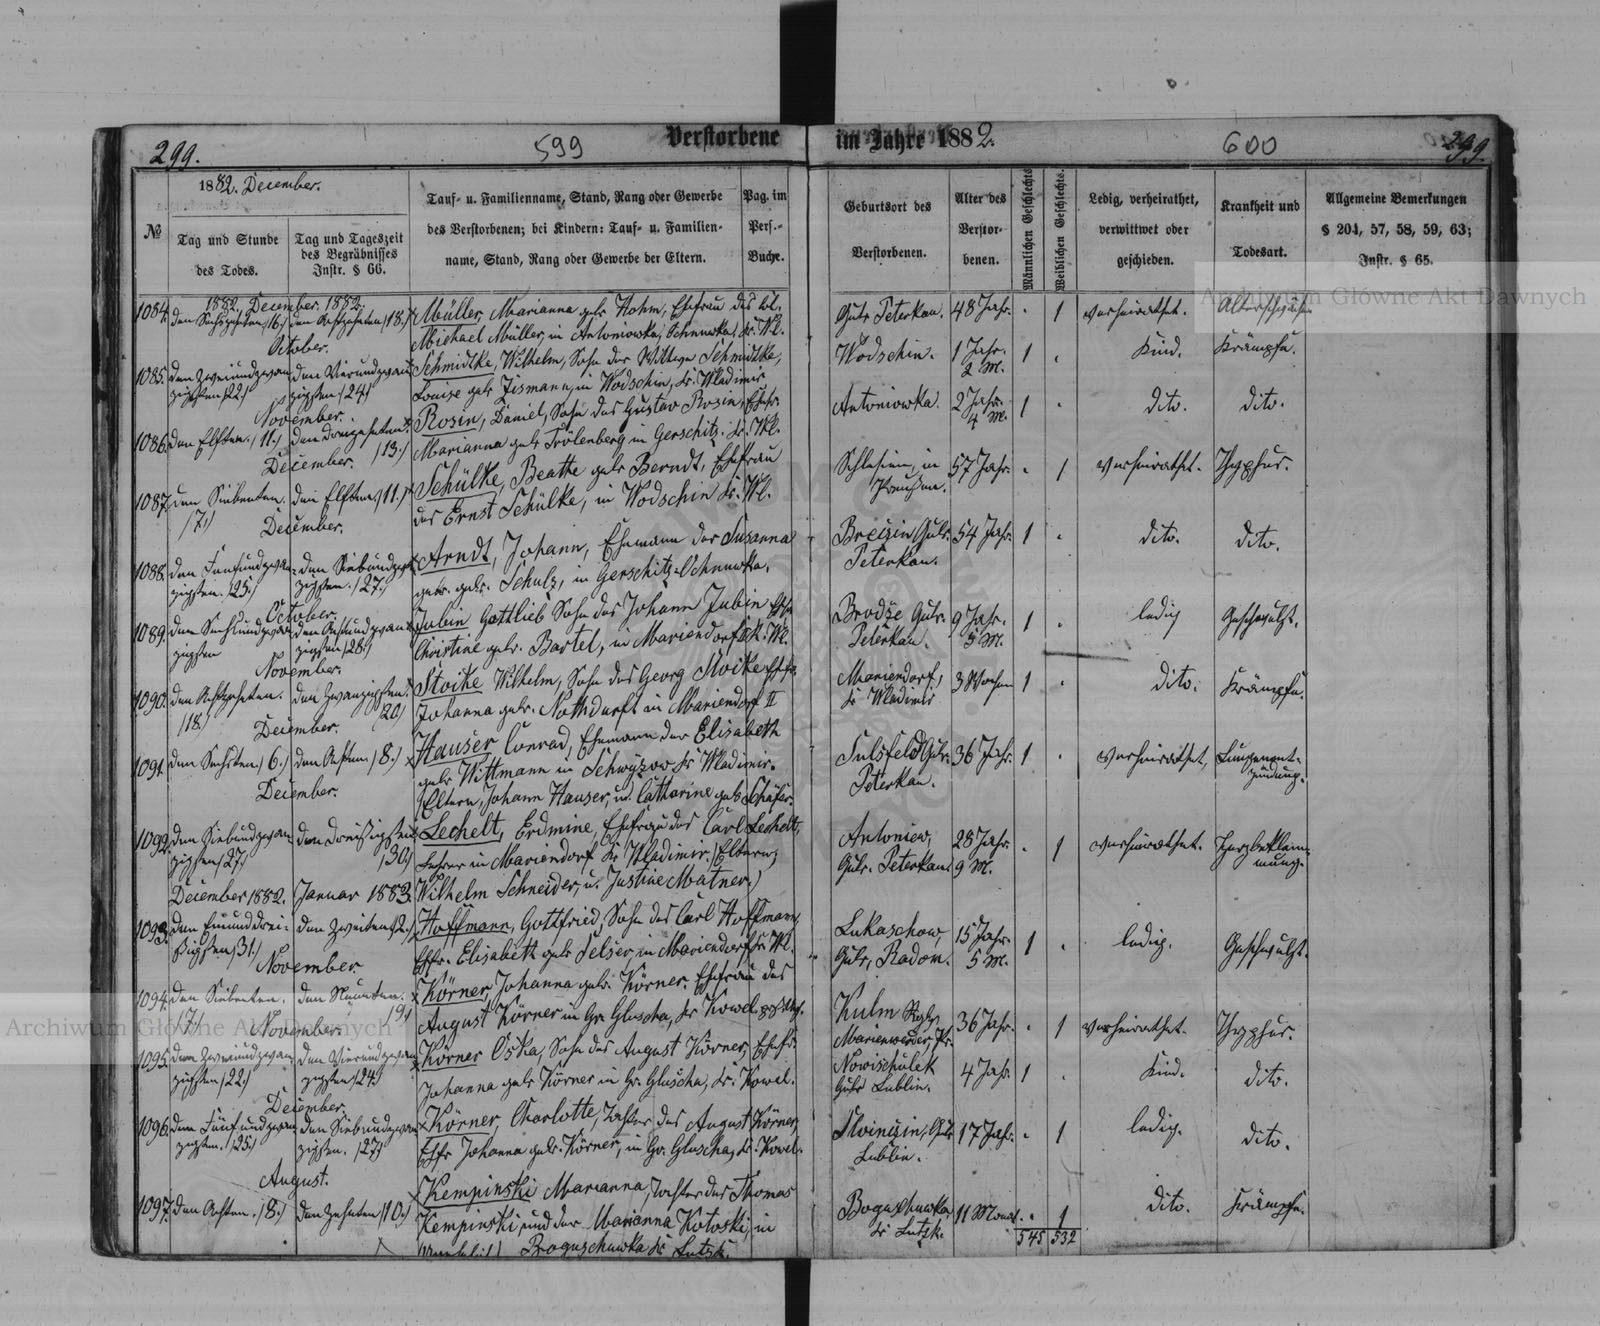 299.
599
Verstorbene
im Jahre 1882.
600
299.
1882. December.
№
Tag und Stunde
des Todes.
Tag und Tageszeit
des Begräbnisses
Instr. § 66.
Tauf- u. Familienname, Stand, Rang oder Gewerbe
des Verstorbenen; bei Kindern: Tauf- u. Familien-
name, Stand, Rang oder Gewerbe der Eltern.
Pag. im
Pers.-
Buche.
Geburtsort des
Verstorbenen.
Alter des
Verstor-
benen.
Männlichen Geschlechts
Weiblichen Geschlechts.
Ledig, verheirathet,
verwittwet oder
geschieden.
Krankheit und
Todesart.
Allgemeine Bemerkungen
§ 204, 57, 58, 59, 63;
Instr. § 65.
1882. December. 1882.
1084. den Sechszehnten /16./ den Achtzehnten /18./ Müller, Marianna geb. Hohm, Ehefrau des
Michael Müller, in Antoniowka, Kr. Wl.
Guv. Peterkau. 48 Jahr. . 1 verheirathet. Altersschwäche.
October.
1085. den Zweiundzwan- den Vierundzwan- Schmidtke, Wilhelm, Sohn der Wittwe Schmidtke,
zigsten /22./ zigsten /24./ Louise geb. Zismann, in Wodschin, Kr. Wladimir.
Wodschin. 1 Jahr. 2 M. 1 . Kind. Krämpfe.
November.
1086. den Elften. /11./ den Dreizehnten. /13./ Rosin, Daniel, Sohn des Gustav Rosin, Ehefr.
Marianna geb. Trölenberg in Gerschitz. Kr. Wl.
Antoniowka. 2 Jahr. 4 M. 1 . dito. dito.
December.
1087. den Siebenten. /7./ den Elften /11./ Schülke, Beathe geb. Berndt, Ehefrau
des Ernst Schülke, in Wodschin Kr. Wl.
Schlesien, in Preußen. 57 Jahr. . 1 verheirathet. Thyphus.
December.
1088. den Fünfundzwan- den Siebundzwan- Arndt, Johann, Ehemann der Susanna
zigsten. /25./ zigsten. /27./ geb. Schulz, in Gerschitz-Ochnuwka.
Brezin Guv. Peterkau. 54 Jahr. 1 . dito. dito.
October.
1089. den Sechsundzwan- den Achtundzwan- Jubin Gottlieb Sohn des Johann Jubin Ehfr.
zigsten zigsten /28./ Christine geb. Bartel, in Mariendorf Kr. Wl.
Brodze Guv. Peterkau. 9 Jahr. 5 M. 1 . ledig Geschwulst.
November.
1090. den Achtzehnten. /18./ den Zwanzigsten. /20./ Stoike Wilhelm, Sohn des Georg Stoike Ehfr.
Johanna geb. Nothdurft in Mariendorf II
Mariendorf, Kr Wladimir 3 Wochen 1 . dito. Krämpfe.
December.
1091. den Sechsten /6./ den Achten /8./ Hauser Conrad, Ehemann der Elisabeth
geb. Wittmann in Schwyzow Kr Wladimir.
(Eltern, Johann Hauser, u. Catharine geb. Schäfer.
Sulsfeld Guv. Peterkau. 36 Jahr. 1 . verheirathet, Lungenent-
zündung.
December.
1092. den Siebundzwan- den Dreißigsten /30./ Lechelt, Erdmine, Ehefrau des Carl Lechelt,
zigsten /27./ Lehrer in Mariendorf Kr Wladimir. (Eltern,
Wilhelm Schneider, u. Justine Matner.)
Antoniew, Guv. Peterkau. 28 Jahr. 9 M. . 1 verheirathet. Herzbeklem-
mung.
December 1882. Januar 1883.
1093. den Einunddrei- den Zweiten /2./ Hoffmann, Gottfried, Sohn des Carl Hoffmann,
ßigsten /31./ Ehfr. Elisabeth geb. Selser, in Mariendorf Kr. Wl.
Lukaschow, Guv. Radom. 15 Jahr. 5 M. 1 . ledig. Geschwulst.
November.
1094. den Siebenten. /7./ den Neunten. /9./ Körner, Johanna geb. Körner. Ehefrau des
August Körner in Gr. Gluscha, Kr Kowel.
Kulm
Marienwerder, Pr. 36 Jahr. . 1 verheirathet. Thyphus.
November.
1095. den Zweiundzwan- den Vierundzwan- Körner Oska, Sohn des August Körner, Ehefr.
zigsten /22./ zigsten /24./ Johanna geb. Körner in Gr. Gluscha, Kr. Kowel.
Nowischulek Guv. Lublin. 4 Jahr. 1 . Kind. dito.
December.
1096. den Fünfundzwan- den Siebundzwan- Körner, Charlotte, Tochter des August Körner,
zigsten. /25./ zigsten. /27./ Ehfr Johanna geb. Körner, in Gr. Gluscha, Kr. Kowel.
Lublin. 17 Jahr. . 1 ledig. dito.
August.
1097. den Achten. /8./ den Zehnten /10./ Kempinski Marianna, Tochter des Thomas
Kempinski und der Marianna Kotoski, in
Boguschuwka Kr Lutzk.
Boguschuwka Kr Lutzk. 11 Monat. . 1 dito. Krämpfe.
545 532
Archiwum Główne Akt Dawnych
Archiwum Główne Akt Dawnych